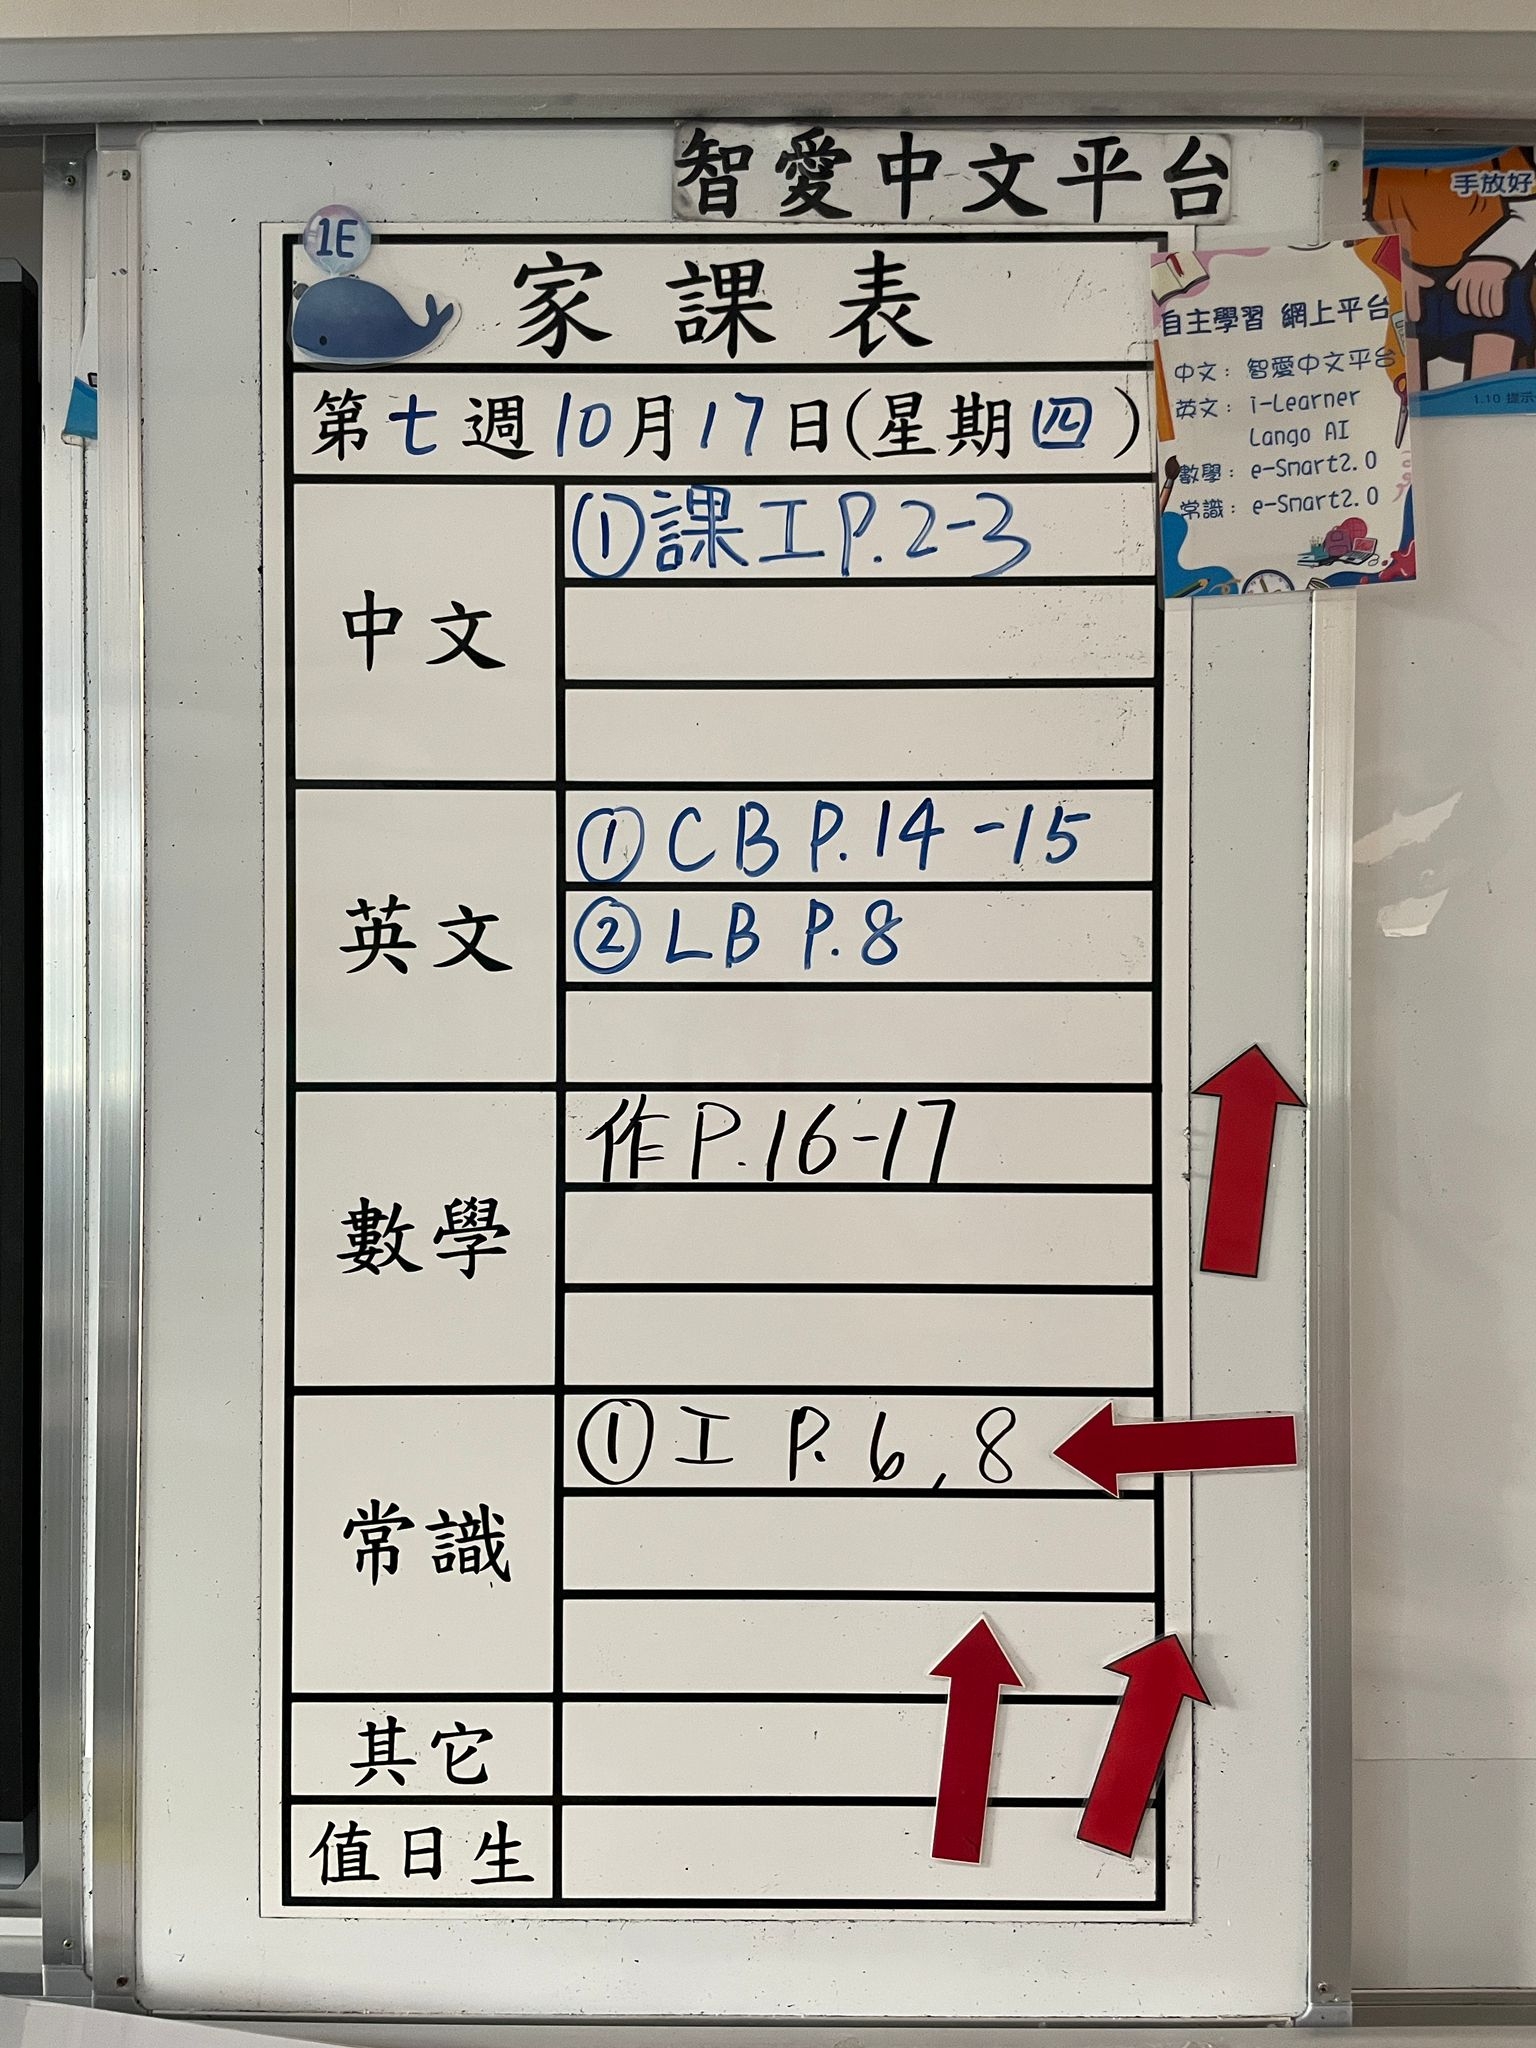 智愛中文平台
手放好
1E
家課表
第七週10月17日(星期四)
自主學習 網上平台
中文：智愛中文平台
英文：i-Learner
Lango AI
數學：e-Smart2.0
常識：e-Smart2.0
1.10 提示
中文
①課工P.2-3
英文
①CB P.14-15
②LB P.8
數學
作P.16-17
常識
①工 P.6,8
其它
值日生